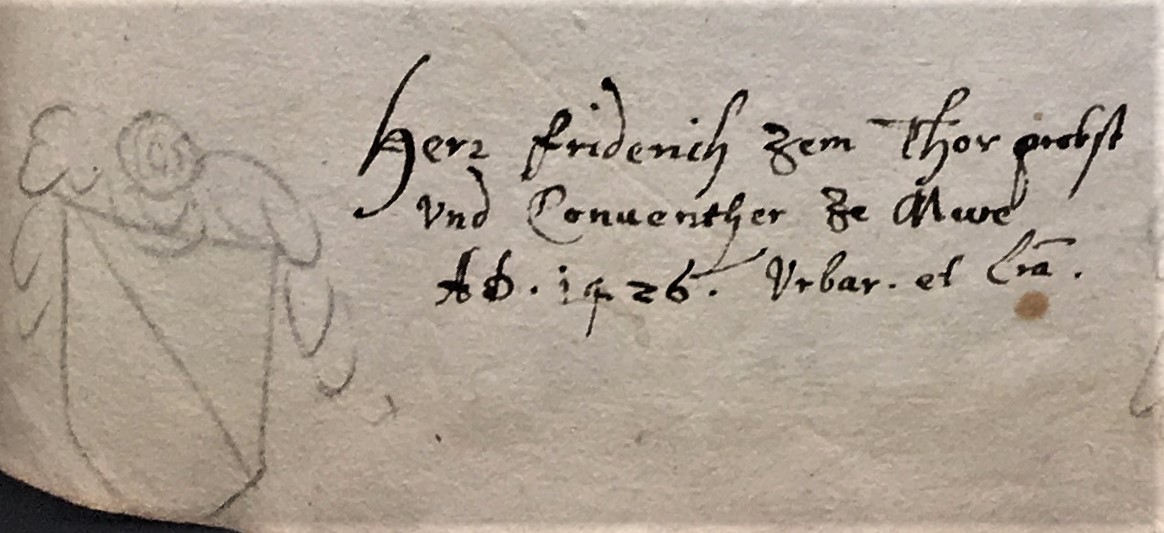 Herr Friderich zem Thor probst
Vnd Conuenther ze Awe
AD. 1426. Vrbar. et